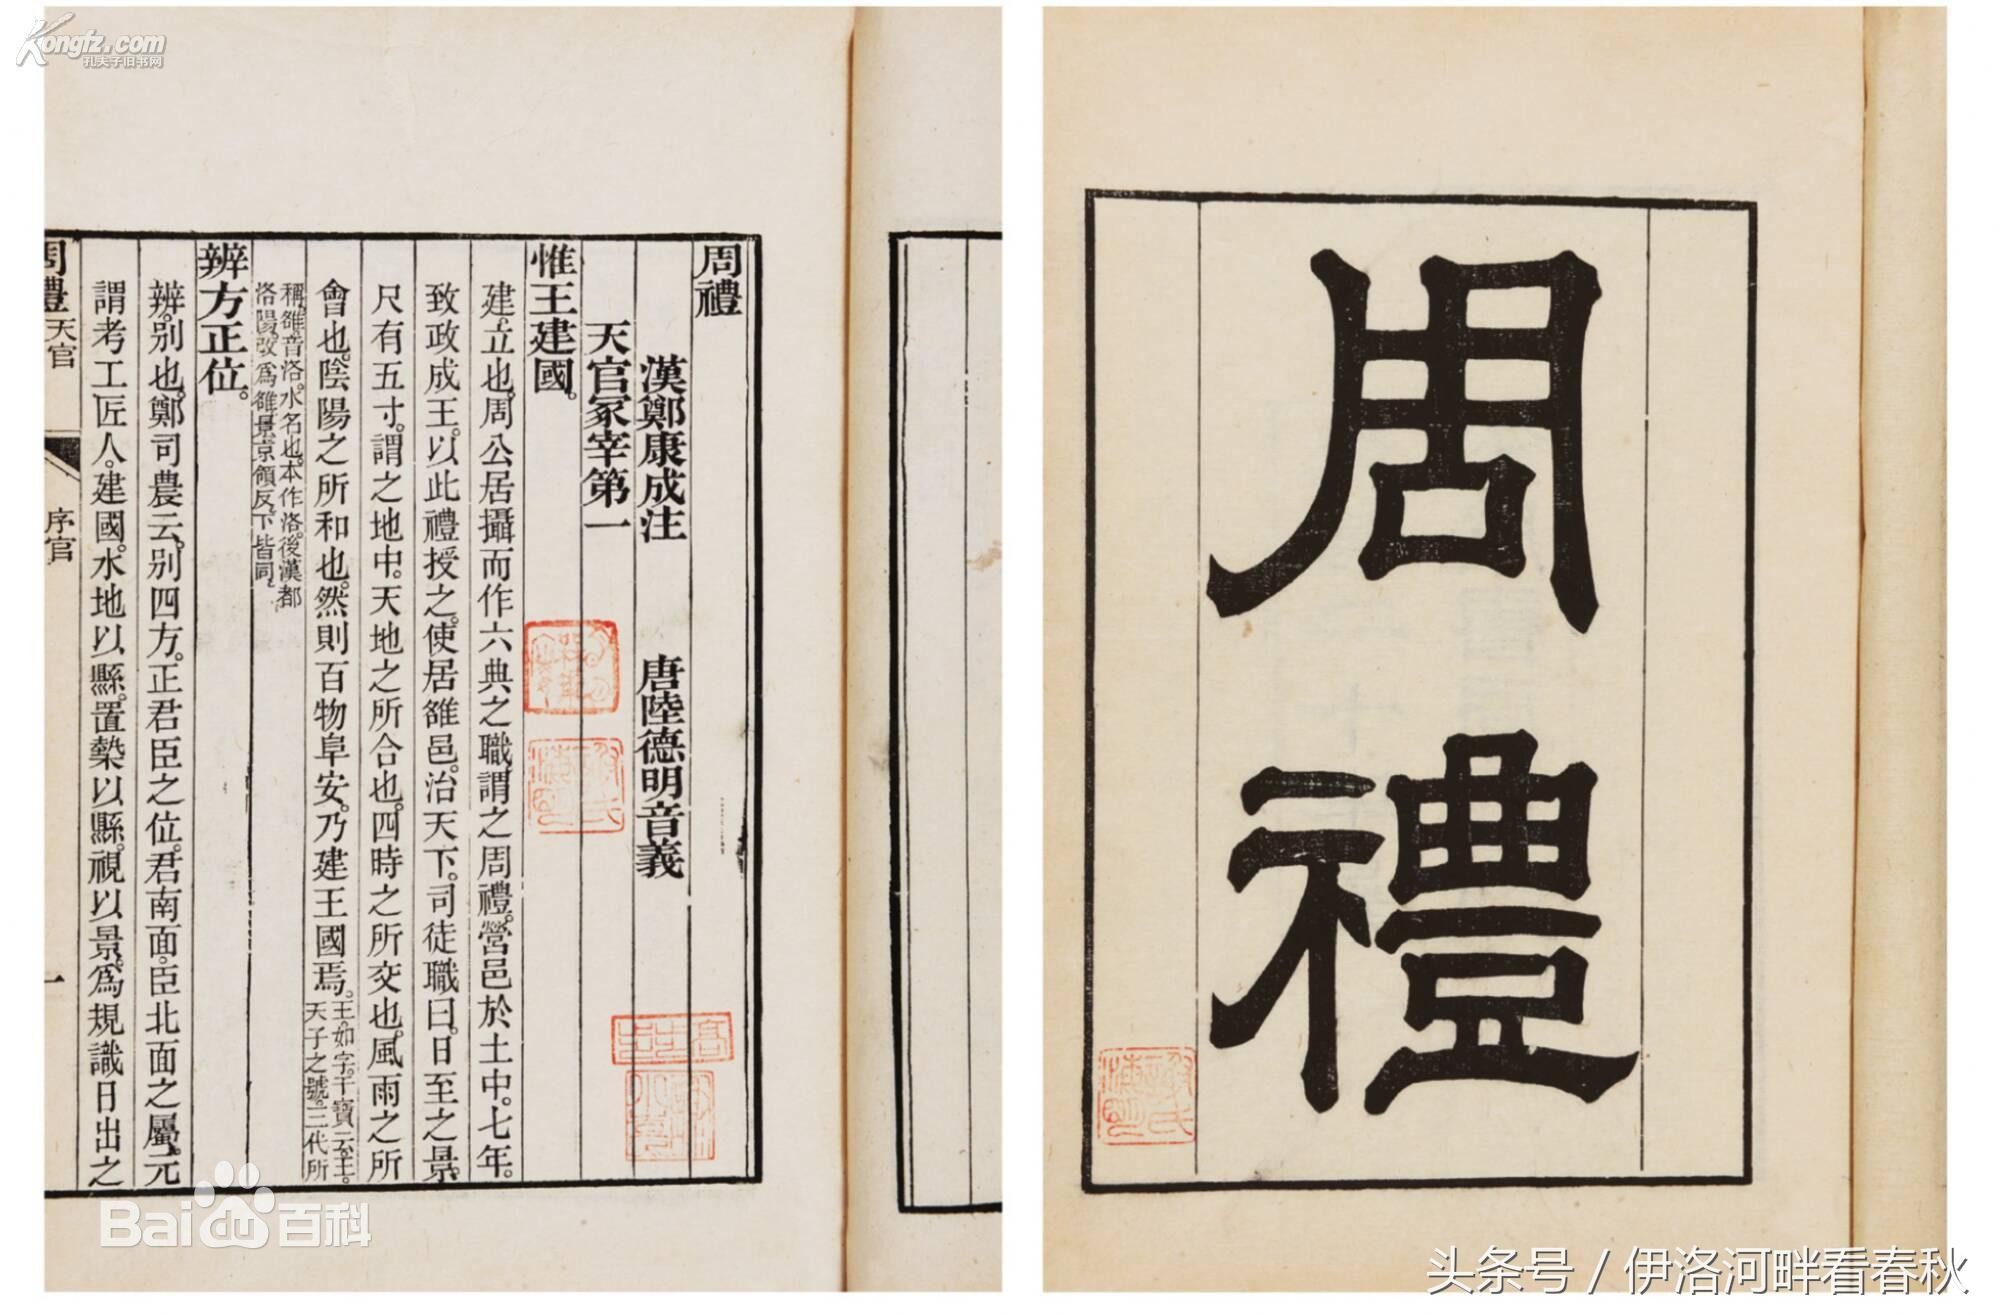 Kongfz.com
孔夫子旧书网
周禮
漢鄭康成注 唐陸德明音義
天官冢宰第一
惟王建國。
建。立也。周公居攝而作六典之職。謂之周禮。營邑於土中。七年。
致政成王。以此禮授之。使居雒邑。治天下。司徒職曰。日至之景。
尺有五寸。謂之地中。天地之所合也。四時之所交也。風雨之所
會也。陰陽之所和也。然則百物阜安。乃建王國焉。王。如字。干寶云。王。
天子之號。三代所
稱。雒。音洛。水名也。本作洛。後漢都
洛陽。改爲雒。景。京領反。下皆同。
辨方正位。
辨。别也。鄭司農云。别四方。正君臣之位。君南面。臣北面之屬。元
謂考工匠人。建國。水地以縣。置槷以縣。視以景。爲規識日出之
周禮 天官 序官 一
周禮
Baidu百科
头条号 / 伊洛河畔看春秋